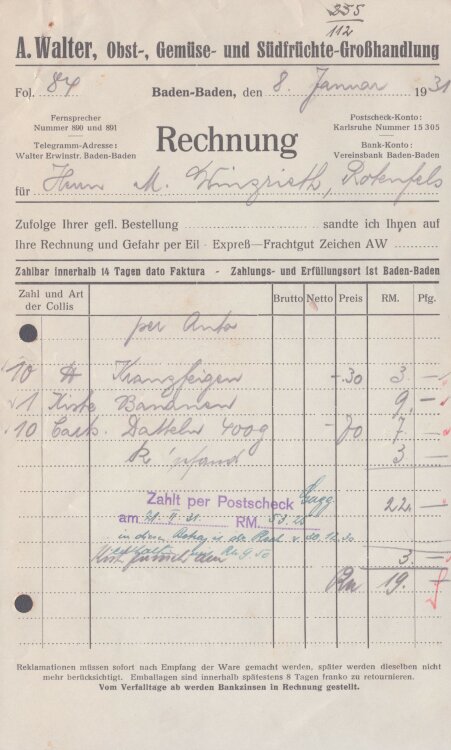 355
112
A. Walter, Obst-, Gemüse- und Südfrüchte-Großhandlung
Fol. 84 Baden-Baden, den 8. Januar 1931
Fernsprecher
Nummer 890 und 891
Telegramm-Adresse:
Walter Erwinstr. Baden-Baden
Rechnung
Postscheck-Konto:
Karlsruhe Nummer 15 305
Bank-Konto:
Vereinsbank Baden-Baden
für Herrn M. Rotenfels
Zufolge Ihrer gefl. Bestellung sandte ich Ihnen auf
Ihre Rechnung und Gefahr per Eil - Expreß—Frachtgut Zeichen AW
Zahlbar innerhalb 14 Tagen dato Faktura - Zahlungs- und Erfüllungsort ist Baden-Baden
Zahl und Art der Collis Brutto Netto Preis RM. Pfg.
per Auto
10 Kranzfeigen -.30 3. —
1 Kiste Bananen 9. —
10 Cart. Datteln 400g -.70 7 —
K. pfand 3 —
Zahlt per Postscheck Gagg. 22. —
am RM. 53.25
in diesem Betrag is der v. 30.12.30
3. —
Rm 19. —
Reklamationen müssen sofort nach Empfang der Ware gemacht werden, später werden dieselben nicht
mehr berücksichtigt. Emballagen sind innerhalb spätestens 8 Tagen franko zu retournieren.
Vom Verfalltage ab werden Bankzinsen in Rechnung gestellt.